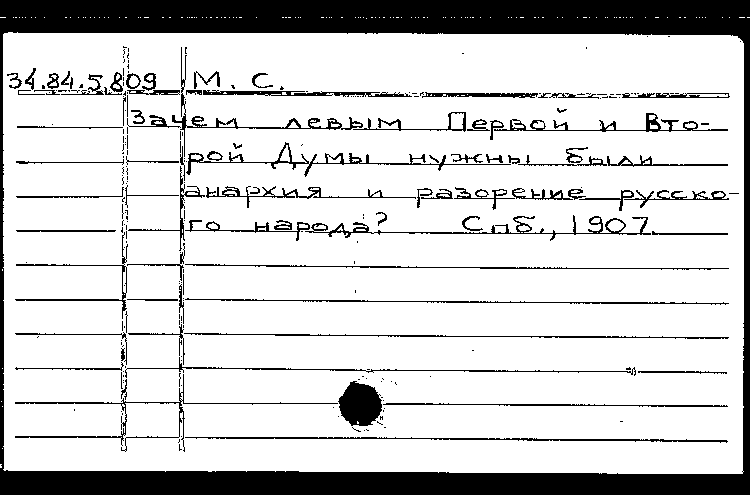 34.84.5.809 М. С.
Зачем левым Первой и Вто-
рой Думы нужны были
анархия и разорение русско-
го народа? Спб., 1907.